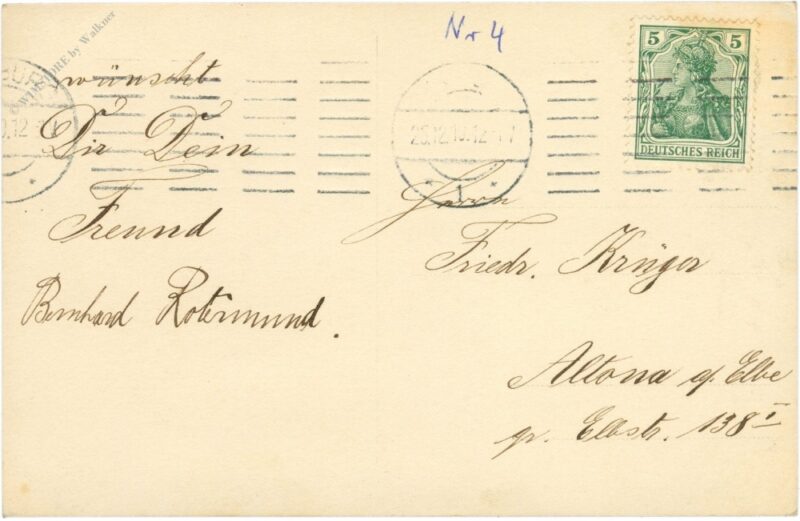 Nr 4
5 5
DEUTSCHES REICH
by Walkner
wünscht
Dir Dein
Freund
Bernhard Rotermund.
Herrn
Friedr. Krüger
Altona a/ Elbe
gr. Elbstr. 138 I